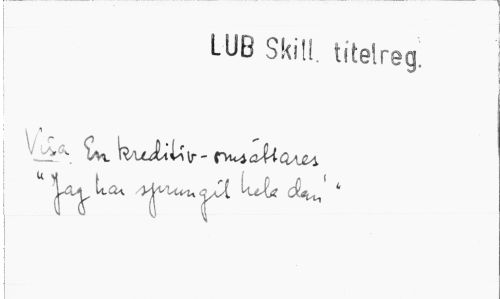 LUB Skill. titelreg.
Visa. En kreditiv-omsättares
"Jag har sprungit hela dan'"